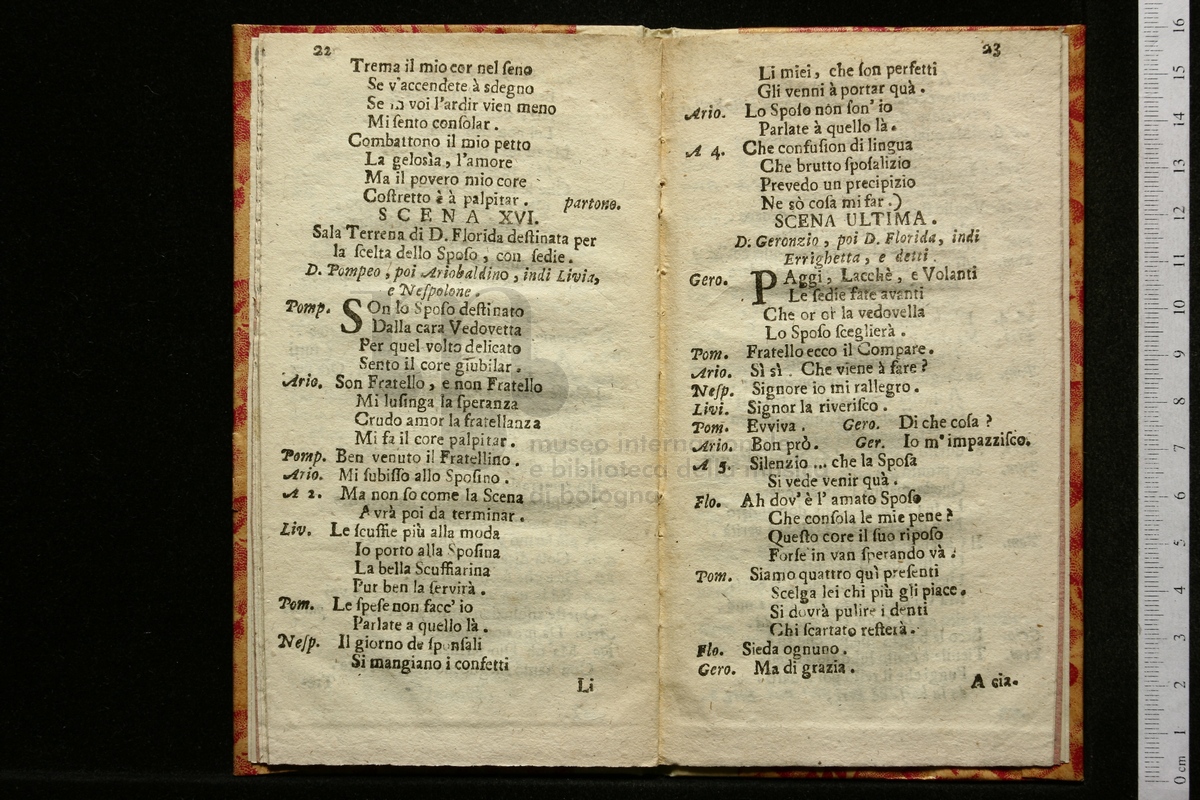 22
Trema il mio cor nel ſeno
Se v'accendete à sdegno
Se in voi l'ardir vien meno
Mi ſento conſolar.
Combattono il mio petto
La gelosìa, l'amore
Ma il povero mio core
Coſtretto è à palpitar. partono.
SCENA XVI.
Sala Terrena di D. Florida deſtinata per
la ſcelta dello Spoſo, con ſedie.
D. Pompeo, poi Ariobaldino, indi Livia,
e Neſpolone.
Pomp. SOn lo Spoſo deſtinato
Dalla cara Vedovetta
Per quel volto delicato
Sento il core giubilar.
Ario. Son Fratello, e non Fratello
Mi luſinga la ſperanza
Crudo amor la fratellanza
Mi fa il core palpitar.
Pomp. Ben venuto il Fratellino.
Ario. Mi ſubiſſo allo Spoſino.
A 2. Ma non ſo come la Scena
Avrà poi da terminar.
Liv. Le ſcuffie più alla moda
Io porto alla Spoſina
La bella Scuffiarina
Pur ben la ſervirà.
Pom. Le ſpeſe non facc' io
Parlate a quello là.
Neſp. Il giorno de ſponſali
Si mangiano i confetti
Li
23
Li miei, che ſon perfetti
Gli venni à portar quà.
Ario. Lo Spoſo nòn ſon' io
Parlate à quello là.
A 4. Che confuſion di lingua
Che brutto ſpoſalizio
Prevedo un precipizio
Ne sò coſa mi far.)
SCENA ULTIMA.
D. Geronzio, poi D. Florida, indi
Errighetta, e detti.
Gero. PAggi, Lacchè, e Volanti
Le ſedie fate avanti
Che or or la vedovella
Lo Spoſo ſceglierà.
Pom. Fratello ecco il Compare.
Ario. Sì sì. Che viene à fare?
Neſp. Signore io mi rallegro.
Livi. Signor la riveriſco.
Pom. Evviva. Gero. Di che coſa?
Ario. Bon prò. Ger. Io m'impazziſco.
A 5. Silenzio ... che la Spoſa
Si vede venir quà.
Flo. Ah dov' è l' amato Spoſo
Che conſola le mie pene?
Queſto core il ſuo ripoſo
Forſe in van ſperando và.
Pom. Siamo quattro quì preſenti
Scelga lei chi più gli piace.
Si dovrà pulire i denti
Chi ſcartato reſterà.
Flo. Sieda ognuno.
Gero. Ma di grazia.
A cia.